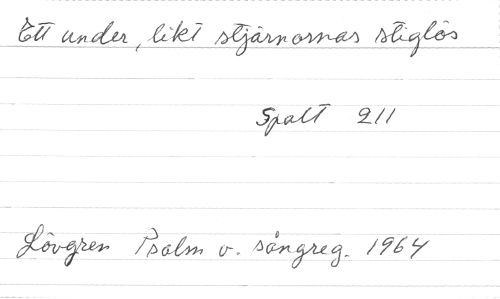 Ett under, likt stjärnornas stiglös
Spalt 211
Lövgren Psalm o. sångreg. 1964